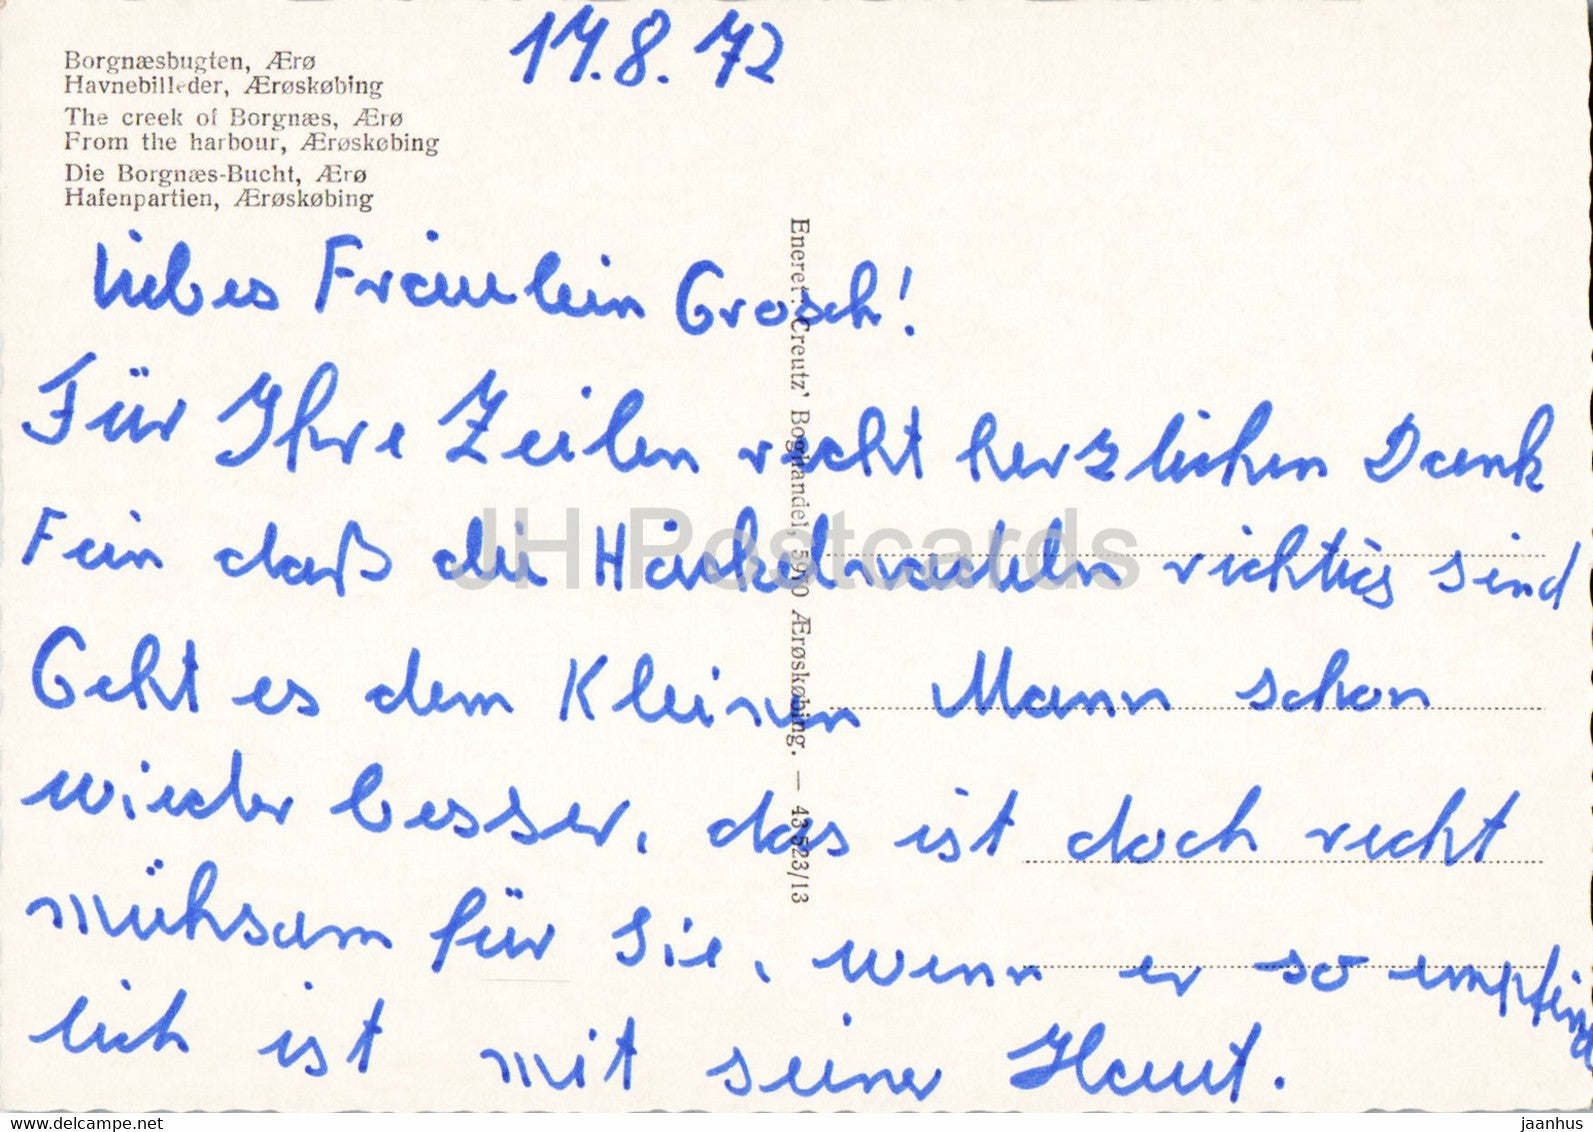 17.8.72
Borgnæsbugten, Ærø
Havnebilleder, Ærøskøbing
The creek of Borgnæs, Ærø
From the harbour, Ærøskøbing
Die Borgnæs-Bucht, Ærø
Hafenpartien, Ærøskøbing
Eneret: Creutz' Boghandel, 5970 Ærøskøbing. — 43 523/13
liebes Fräulein Grosch!
Für Ihre Zeilen recht herzlichen Dank
Fein daß die Häkelnadeln richtig sind
Geht es dem Kleinen Mann schon
wieder besser, das ist doch recht
mühsam für Sie, wenn er so empfind
lich ist mit seiner Haut.
JH Postcards
www.delcampe.net
jaanhus